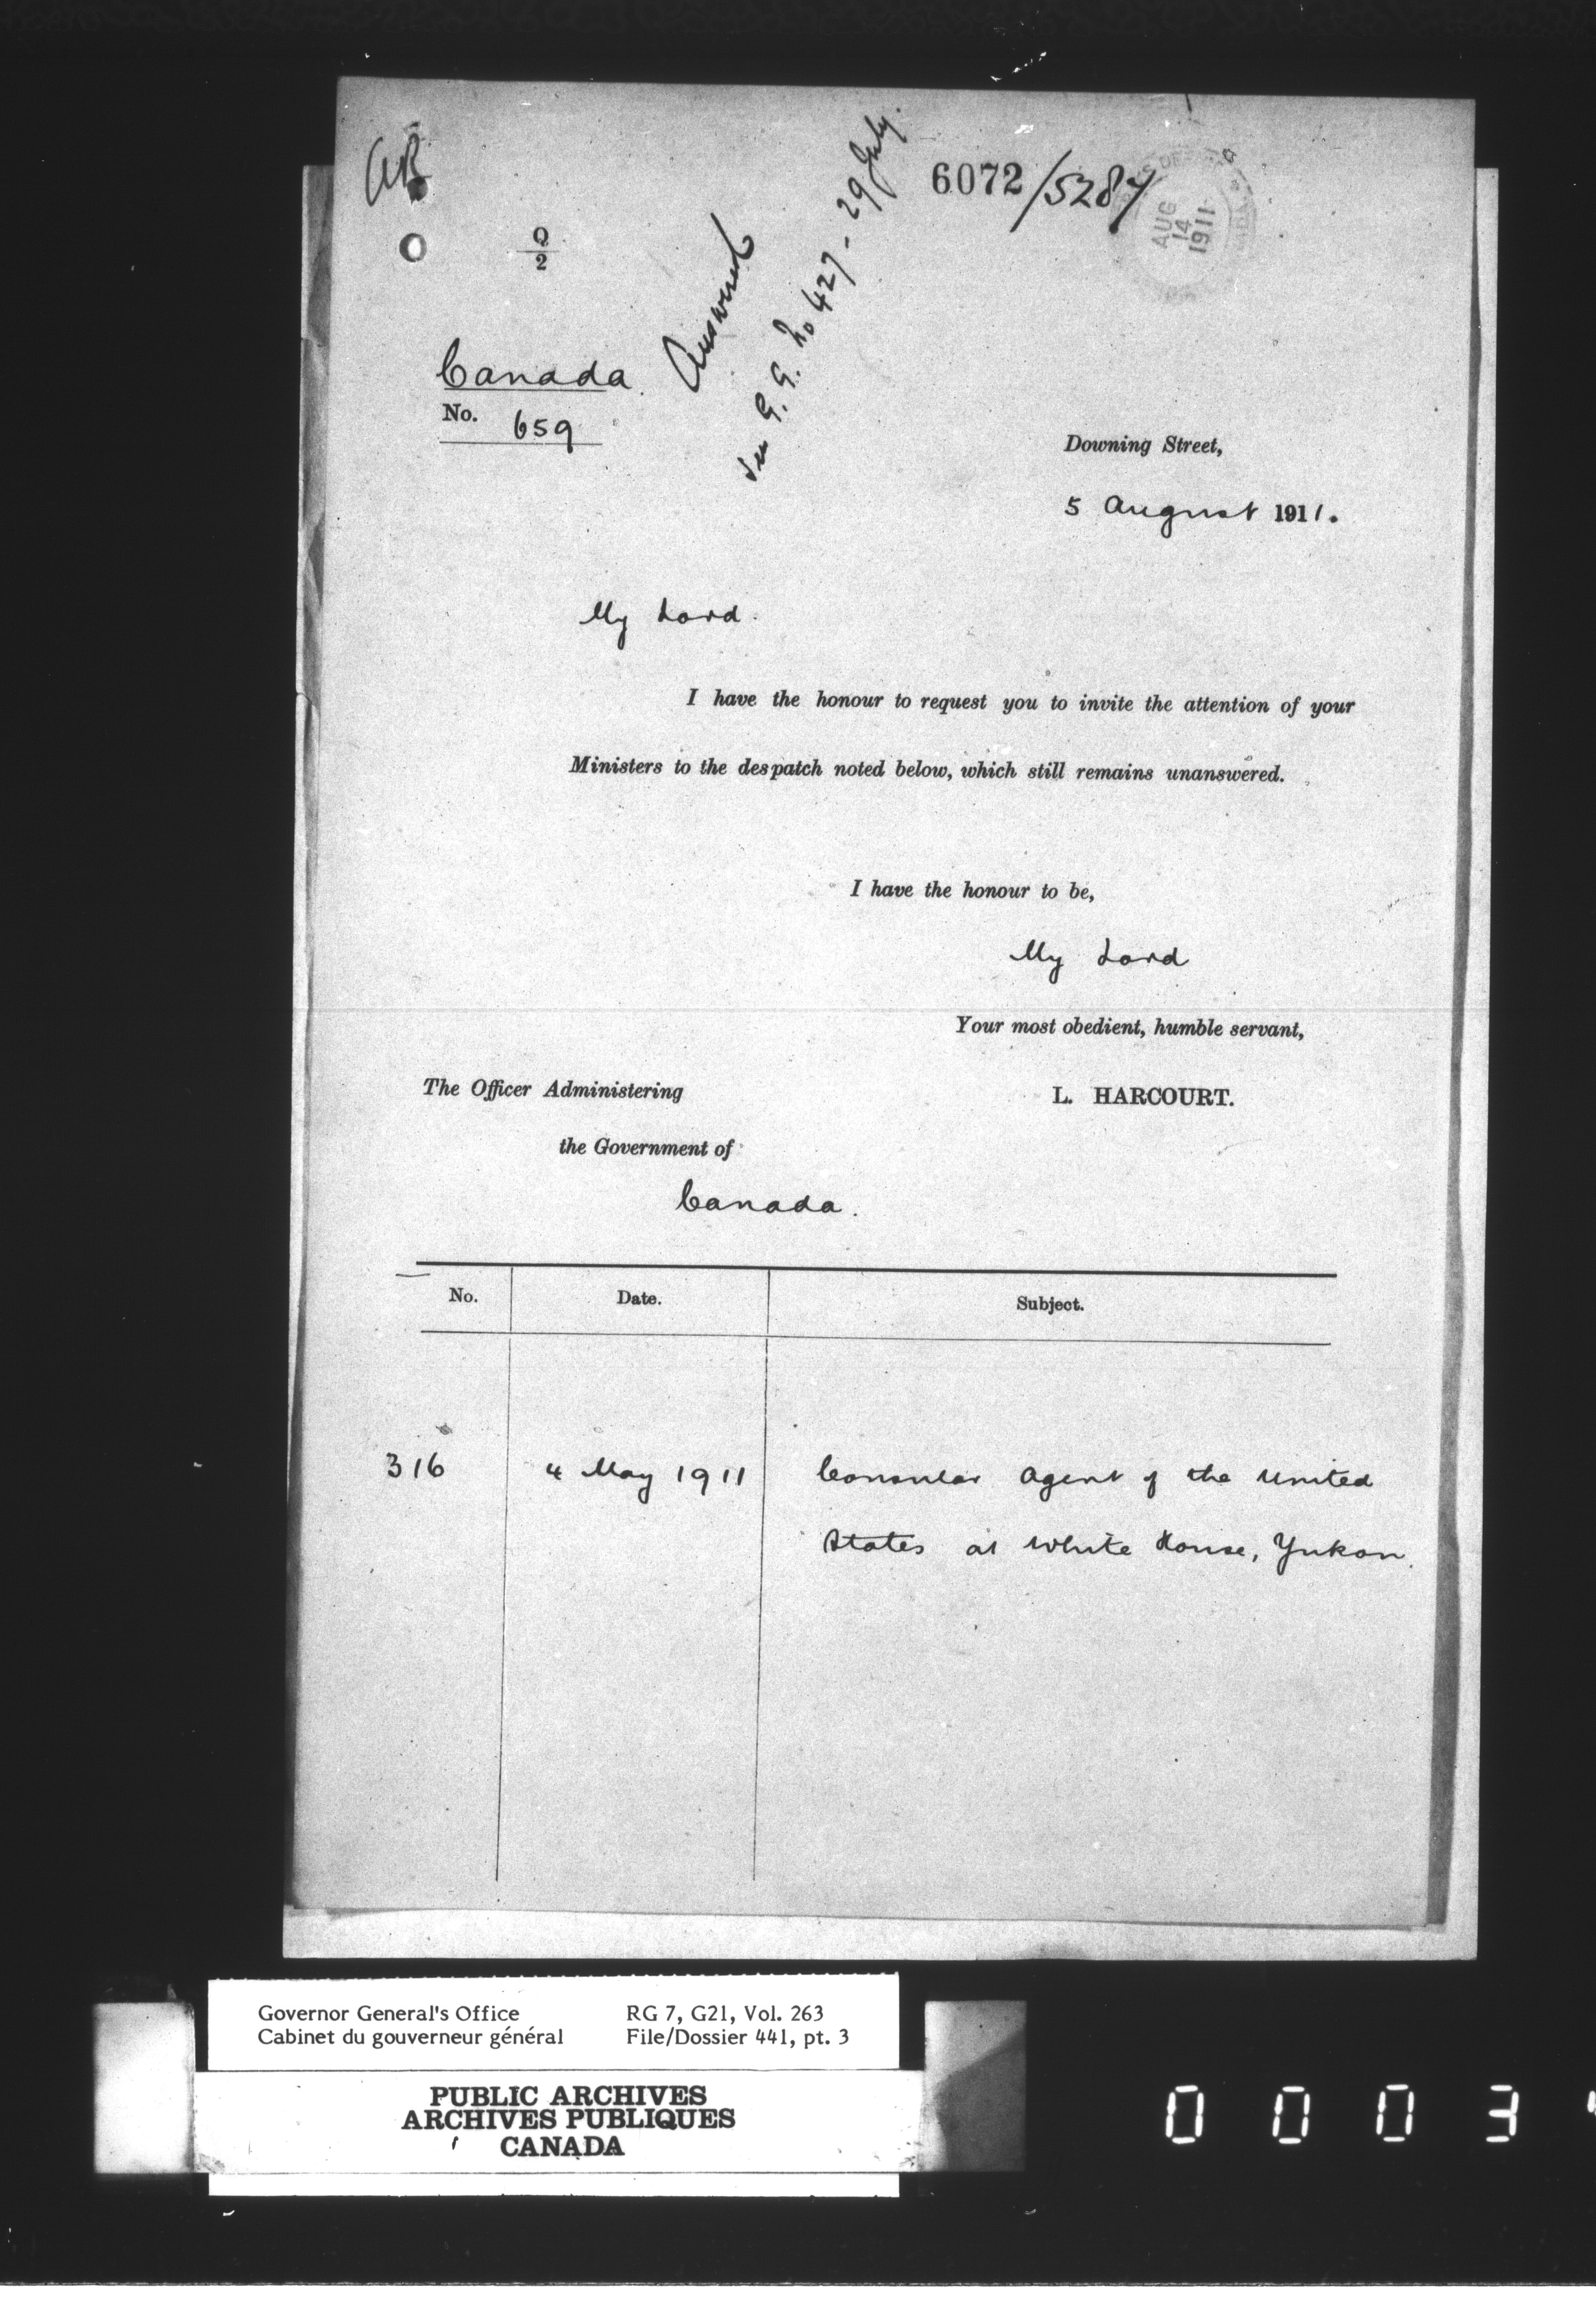 6072/5287
AUG
14
1911
Q
2
Answered
See G. G. No 427 - 29 July.
Canada.
No. 659
Downing Street,
5 August 1911.
My Lord.
I have the honour to request you to invite the attention of your
Ministers to the despatch noted below, which still remains unanswered.
I have the honour to be,
My Lord
Your most obedient, humble servant,
The Officer Administering
L. HARCOURT.
the Government of
Canada.
No. Date. Subject.
316 4 May 1911 Consular Agent of the United
States at White House, Yukon.
Governor General's Office RG 7, G21, Vol. 263
Cabinet du gouverneur général File/Dossier 441, pt. 3
PUBLIC ARCHIVES
ARCHIVES PUBLIQUES
CANADA
0 0 0 3